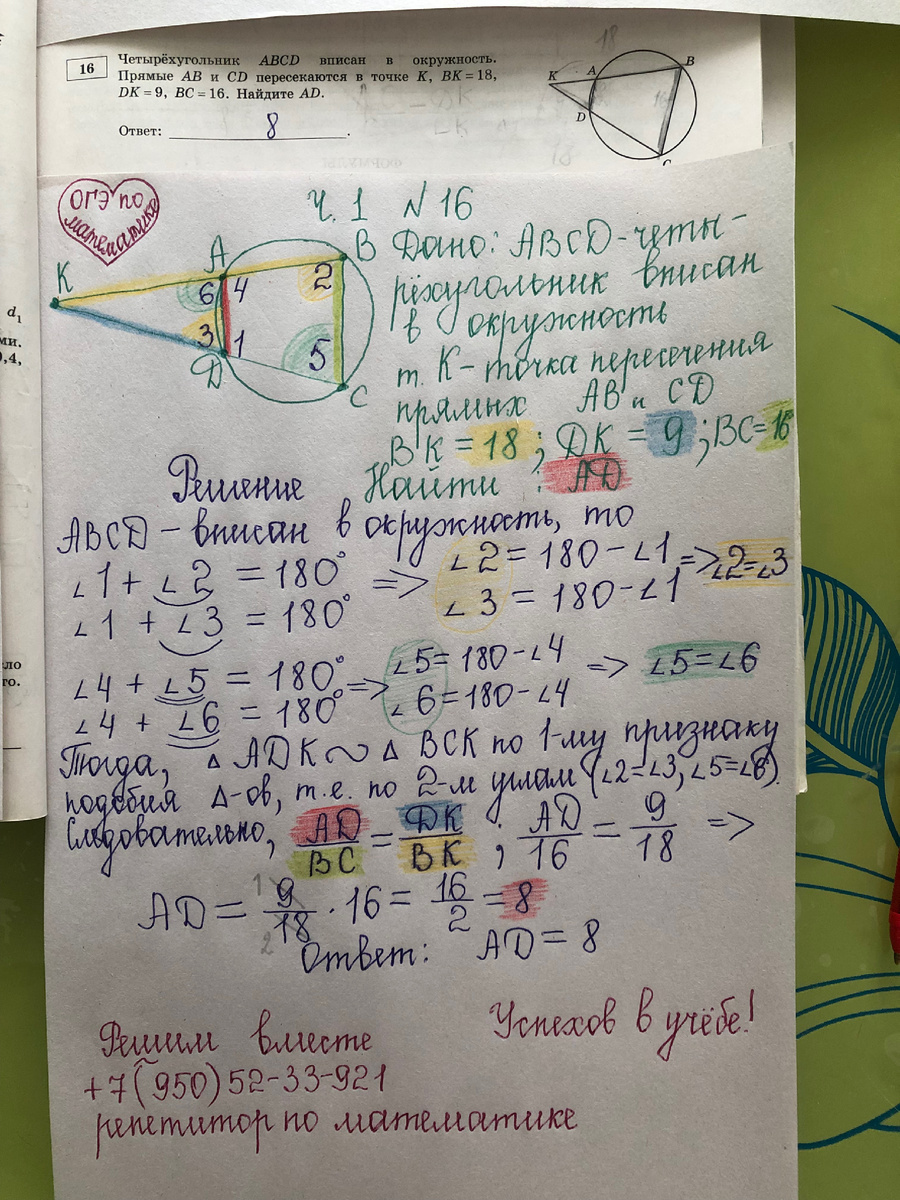 16
Четырёхугольник ABCD вписан в окружность.
Прямые AB и CD пересекаются в точке K, BK = 18,
DK = 9, BC = 16. Найдите AD.
Ответ: 8.
18
K A B
16
D
C
18
ФОРМУЛЫ
d₁
ми.
0,4,
ло
го.
ОГЭ по
математике
Ч. 1 N 16
K A B
6 4 2
3 1 5
D C
Дано: ABCD - четы-
рёхугольник вписан
в окружность
т. K - точка пересечения
прямых AB и CD
BK = 18; DK = 9; BC = 16
Решение Найти: AD
ABCD - вписан в окружность, то
∠1 + ∠2 = 180° => ∠2 = 180 - ∠1 => ∠2 = ∠3
∠1 + ∠3 = 180° ∠3 = 180 - ∠1
∠4 + ∠5 = 180° => ∠5 = 180 - ∠4 => ∠5 = ∠6
∠4 + ∠6 = 180° ∠6 = 180 - ∠4
Тогда, △ ADK ∾ △ BCK по 1-му признаку
подобия △-ов, т.е. по 2-м углам (∠2=∠3, ∠5=∠6).
Следовательно, AD/BC = DK/BK ; AD/16 = 9/18 =>
AD = 9/18 · 16 = 16/2 = 8
1
2
Ответ: AD = 8
Успехов в учёбе!
Решим вместе
+7(950)52-33-921
репетитор по математике